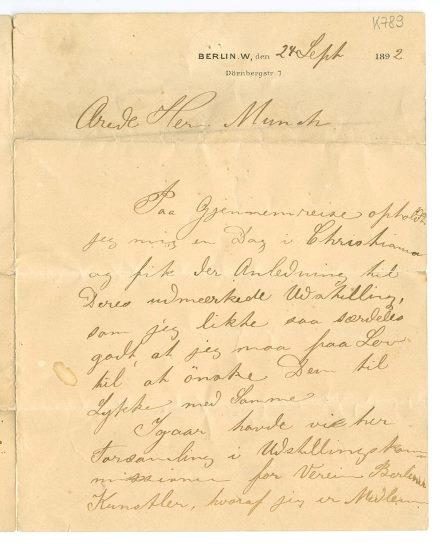 K789
BERLIN.W, den 24 Sept 1892
Dörnbergstr. 1
Ærede Her Munch
Paa Gjennemreise opholdt
jeg mig en Dag i Christiania
og fik der Anledning til
Deres udmærkede Udstilling,
som jeg likte saa særdeles
godt, at jeg maa faa Lov
til at önske Dem til
Lykke med Samme
Igaar havde vi her
Forsamling i Udstillingskom-
missionen for Verein Berliner
Künstler, hvoraf jeg er Medlem